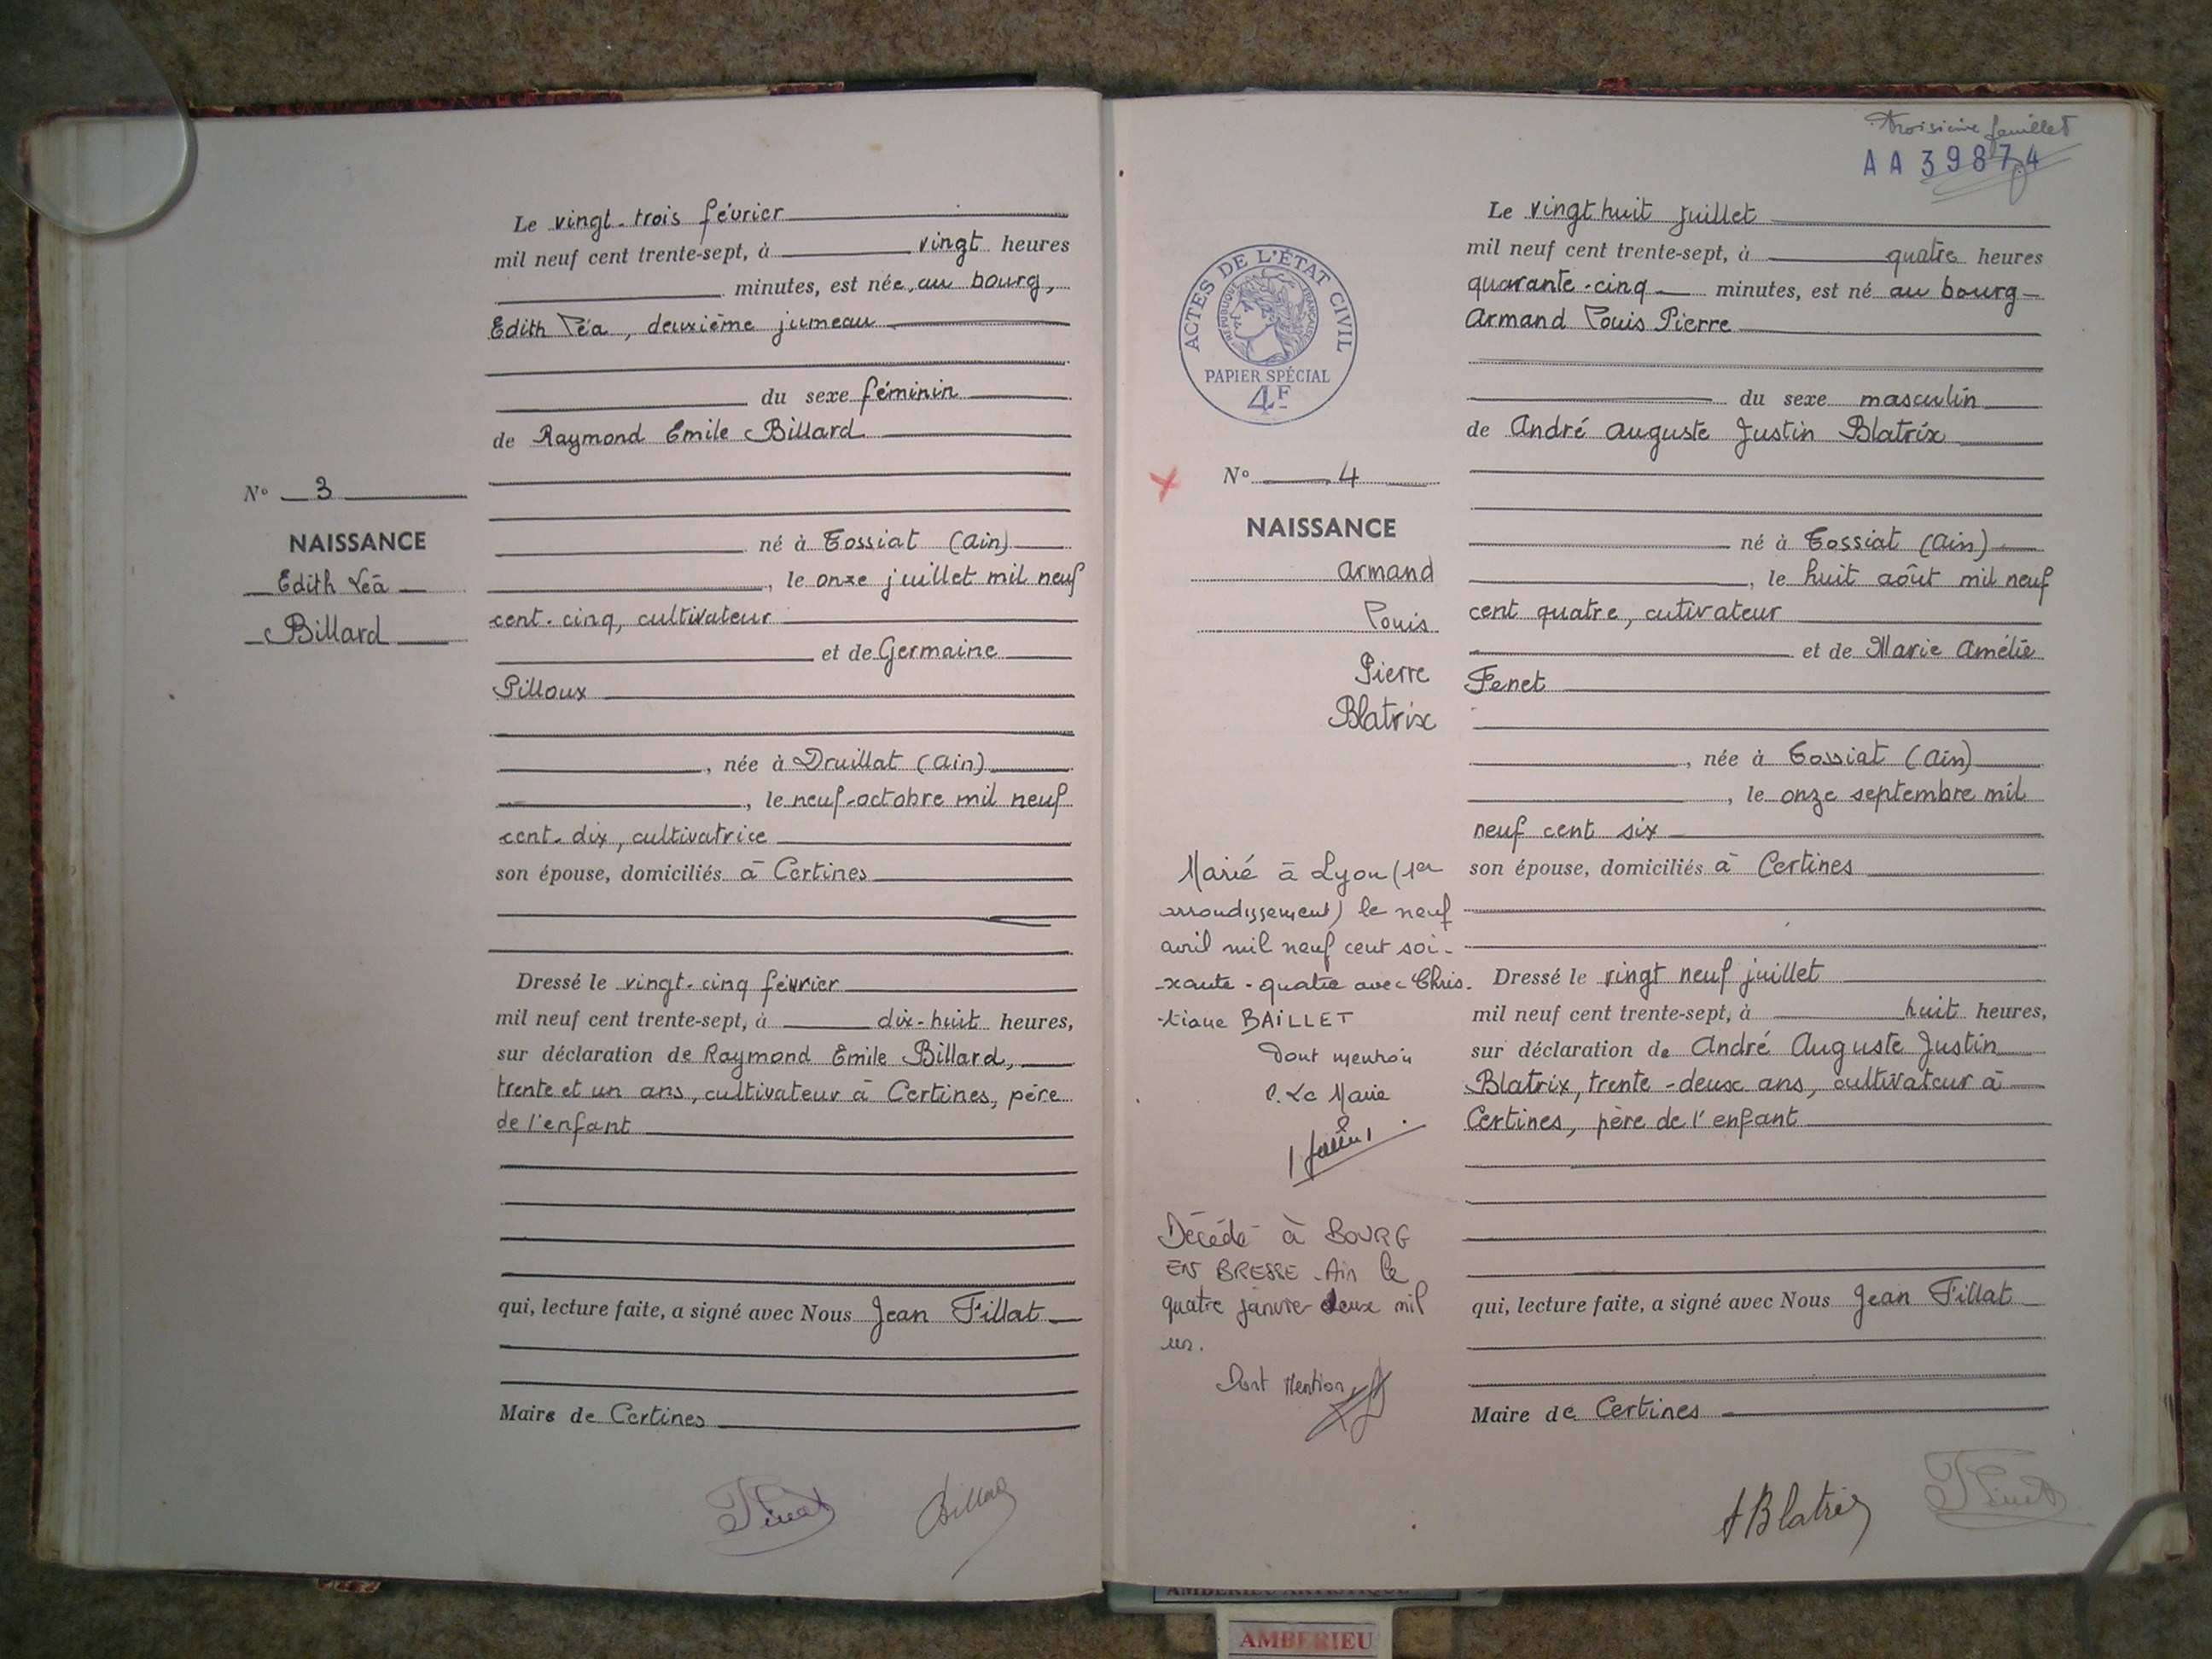 Le vingt-trois février
mil neuf cent trente-sept, à vingt heures
minutes, est née au bourg,
Edith Léa, deuxième jumeau
du sexe féminin
de Raymond Emile Billard
N° 3
NAISSANCE
Edith Léa
Billard
né à Tossiat (Ain)
, le onze juillet mil neuf
cent-cinq, cultivateur
et de Germaine
Pilloux
, née à Druillat (Ain)
, le neuf-octobre mil neuf
cent-dix, cultivatrice
son épouse, domiciliés à Certines
Dressé le vingt-cinq février
mil neuf cent trente-sept, à dix-huit heures,
sur déclaration de Raymond Emile Billard,
trente et un ans, cultivateur à Certines, père
de l'enfant
qui, lecture faite, a signé avec Nous Jean Fillat
Maire de Certines
Billard
troisième feuillet
AA 39874
ACTES DE L'ÉTAT CIVIL
RÉPUBLIQUE FRANÇAISE
PAPIER SPÉCIAL
4F
Le vingt huit juillet
mil neuf cent trente-sept, à quatre heures
quarante-cinq minutes, est né au bourg
Armand Louis Pierre
du sexe masculin
de André Auguste Justin Blatrix
N° 4
NAISSANCE
Armand
Louis
Pierre
Blatrix
né à Tossiat (Ain)
, le huit août mil neuf
cent quatre, cutivateur
et de Marie Amélie
Fenet
, née à Tossiat (Ain)
, le onze septembre mil
neuf cent six
son épouse, domiciliés à Certines
Dressé le vingt neuf juillet
mil neuf cent trente-sept, à huit heures,
sur déclaration de André Auguste Justin
Blatrix, trente-deux ans, cultivateur à
Certines, père de l'enfant
qui, lecture faite, a signé avec Nous Jean Fillat
Maire de Certines
Marié à Lyon (1er
arrondissement) le neuf
avril mil neuf cent soi-
xante-quatre avec Chris-
tiane BAILLET
Dont mention
P. Le Maire
Décédé à BOURG
EN BRESSE Ain le
quatre janvier deux mil
un.
Dont Mention
A Blatrix
AMBERIEU ARTISTIQUE
AMBERIEU